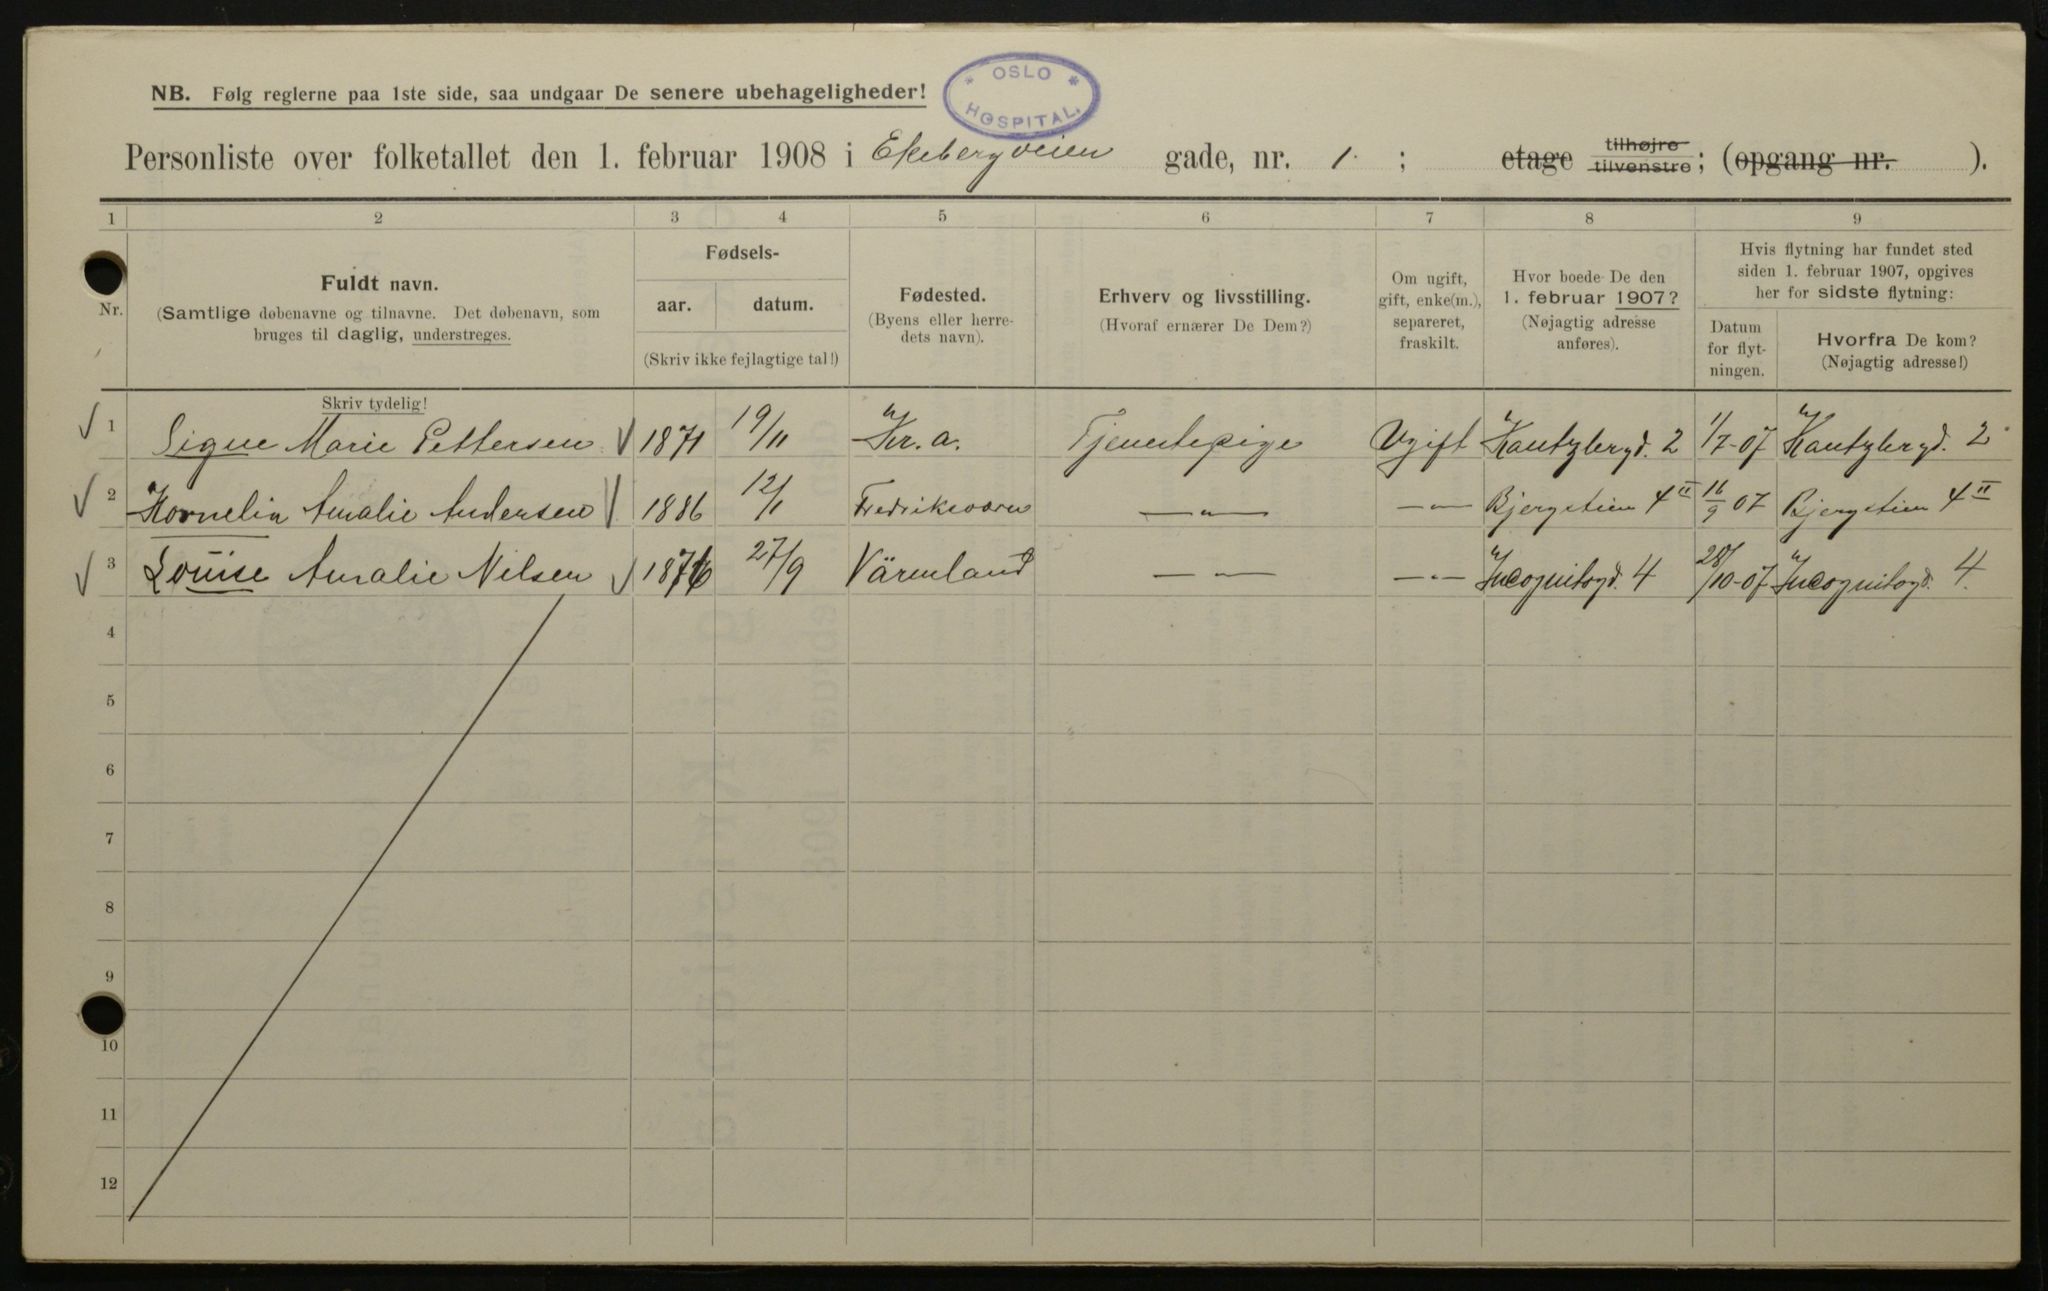 NB. Følg reglerne paa 1ste side, saa undgaar De senere ubehageligheder!
* OSLO *
HOSPITAL.
Personliste over folketallet den 1. februar 1908 i Ekebergveien gade, nr. 1. ; etage tilhøjre tilvenstre; (opgang nr. ).
1 2 3 4 5 6 7 8 9
Nr.
Fuldt navn.
(Samtlige døbenavne og tilnavne. Det døbenavn, som
bruges til daglig, understreges.
Fødsels-
aar. datum.
(Skriv ikke fejlagtige tal!)
Fødested.
(Byens eller herre-
dets navn).
Erhverv og livsstilling.
(Hvoraf ernærer De Dem?)
Om ugift,
gift, enke(m.),
separeret,
fraskilt.
Hvor boede De den
1. februar 1907?
(Nøjagtig adresse
anføres).
Hvis flytning har fundet sted
siden 1. februar 1907, opgives
her for sidste flytning:
Datum
for flyt-
ningen.
Hvorfra De kom?
(Nøjagtig adresse!)
Skriv tydelig!
1 Signe Marie Pettersen 1871 19/11 Kr.a. Tjenestepige Ugift Kautzbergd. 2 1/7-07 Kautzbergd. 2
2 Kornelia Amalie Andersen 1886 12/1 Fredriksværn —"— —"— Bjergstien 4 II 16/9 07 Bjergstien 4 II
3 Louise Amalie Nilsen 1876 27/9 Värmland —"— —"— Incognitogd. 4 28/10-07 Incognitogd. 4.
4
5
6
7
8
9
10
11
12